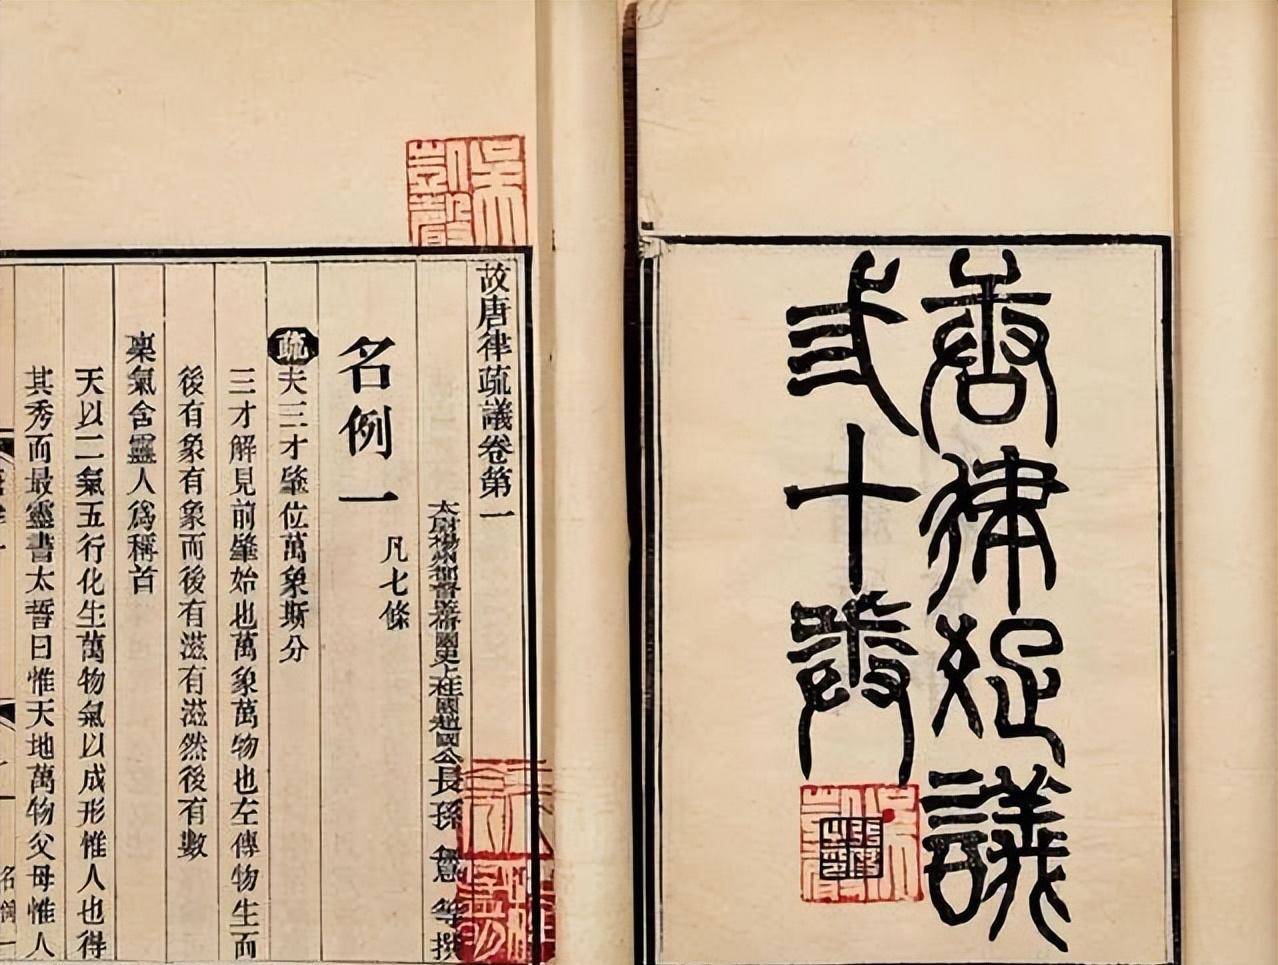 唐律疏議
弎十卷
故唐律疏議卷第一
太尉揚州都督監脩國史上柱國趙國公長孫無忌等撰
名例一 凡七條
疏 夫三才肇位萬象斯分
三才解見前肇始也萬象萬物也左傳物生而
後有象有象而後有滋有滋然後有數
稟氣含靈人爲稱首
天以二氣五行化生萬物氣以成形惟人也得
其秀而最靈書太誓曰惟天地萬物父母惟人
名例一